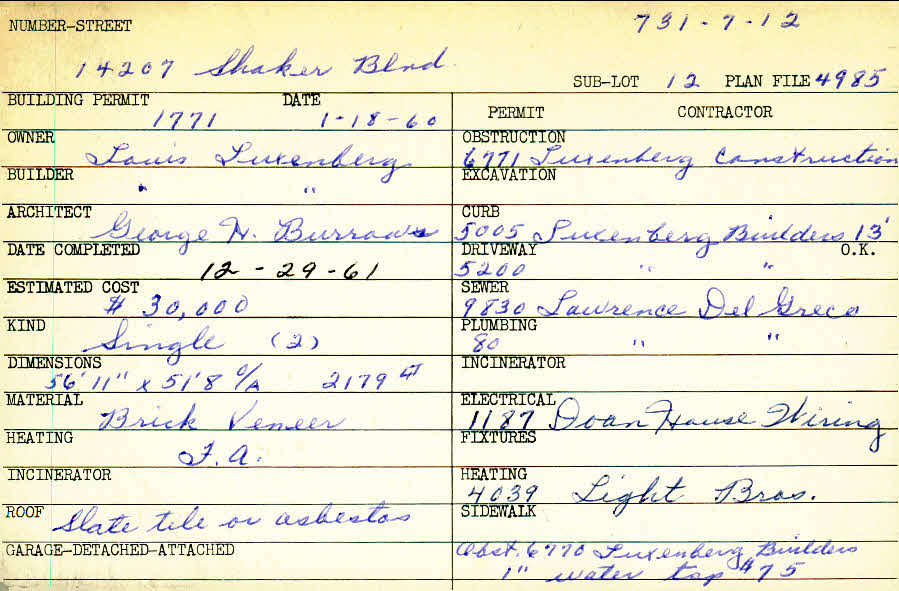 NUMBER-STREET 731-7-12
14207 Shaker Blvd.
SUB-LOT 12 PLAN FILE 4985
BUILDING PERMIT DATE
1771 1-18-60
OWNER
Louis Luxenberg
BUILDER
" "
ARCHITECT
George H. Burrows
DATE COMPLETED
12-29-61
ESTIMATED COST
$ 30,000
KIND
Single (2)
DIMENSIONS
56'11" x 51'8 O/A 2179
MATERIAL
Brick Veneer
HEATING
F.A.
INCINERATOR
ROOF Slate tile or asbestos
GARAGE-DETACHED-ATTACHED
PERMIT CONTRACTOR
OBSTRUCTION
6771 Luxenberg Construction
EXCAVATION
CURB
5005 Luxenberg Builders 13'
DRIVEWAY O.K.
5200 " "
SEWER
9830 Lawrence Del Greco
PLUMBING
80 " "
INCINERATOR
ELECTRICAL
1187 Doan House Wiring
FIXTURES
HEATING
4039 Light Bros.
SIDEWALK
Obst. 6770 Luxenberg Builders
1" water tap #75